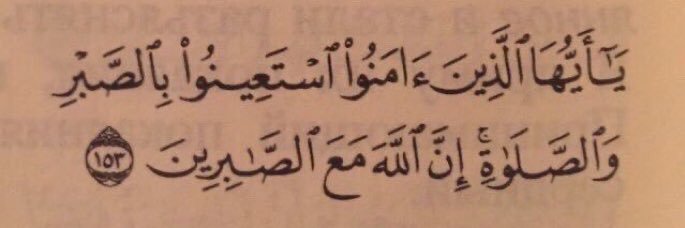 يَٰٓأَيُّهَا ٱلَّذِينَ ءَامَنُوا۟ ٱسْتَعِينُوا۟ بِٱلصَّبْرِ
وَٱلصَّلَوٰةِ ۚ إِنَّ ٱللَّهَ مَعَ ٱلصَّٰبِرِينَ ١٥٣